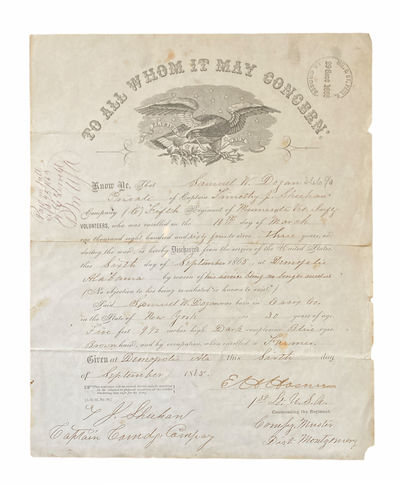 TO ALL WHOM IT MAY CONCERN.
Know Ye, That Samuel W. Dogan
Private of Captain Timothy J. Sheehan
Company, (C) Fifth Regiment of Minnesota
VOLUNTEERS, who was enrolled on the day of March
one thousand eight hundred and sixty four to serve Three years or
during the war, is hereby Discharged from the service of the United States,
this Sixth day of September, 1865, at Demopolis
Alabama by reason of his service being no longer needed
(No objection to his being re-enlisted is known to exist.)
Said Samuel W. Dogan was born in Co
in the State of New York, is 30 years of age,
Five feet 9½ inches high, Dark complexion, Blue eyes,
Brown hair, and by occupation, when enrolled, a Farmer.
Given at Demopolis Ala this Sixth day
of September 1865.
1st Lt. U.S.A.
Commanding the Regiment.
T. J. Sheehan
Comsy Muster
Captain Comdg Company
Dist Montgomery